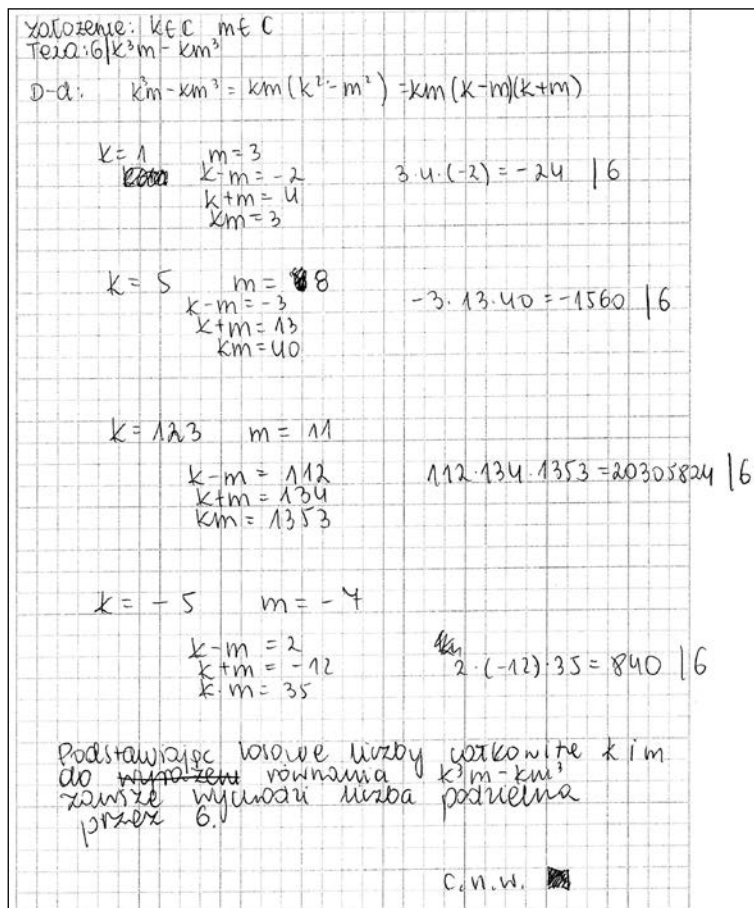 Założenie: k∈C m∈C
Teza: 6|k³m - km³
D-d: k³m - km³ = km(k² - m²) = km(k-m)(k+m)
k = 1 m = 3
k-m = -2 3·4·(-2) = -24 | 6
k+m = 4
km = 3
k = 5 m = 8
k-m = -3 -3·13·40 = -1560 | 6
k+m = 13
km = 40
k = 123 m = 11
k-m = 112 112·134·1353 = 20305824 | 6
k+m = 134
km = 1353
k = -5 m = -7
k-m = 2 2·(-12)·35 = 840 | 6
k+m = -12
k·m = 35
Podstawiając losowe liczby całkowite k i m
do wyrażeni równania k³m - km³
zawsze wychodzi liczba podzielna
przez 6.
c.n.w.